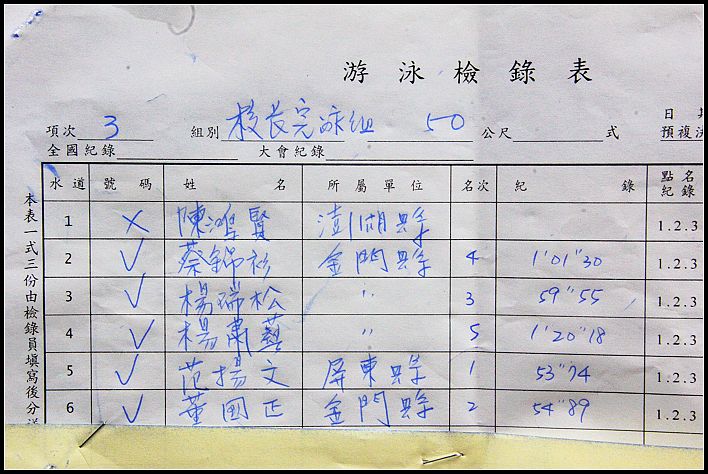 游泳檢錄表
日期
項次 3 組別 校長完泳組 50 公尺 式 預複決
全國紀錄 大會紀錄
水道 號碼 姓名 所屬單位 名次 紀錄 點名紀錄
1 × 陳鴻賢 澎湖縣 1.2.3
2 ✓ 蔡錦衫 金門縣 4 1'01"30 1.2.3
3 ✓ 楊瑞松 〃 3 59"55 1.2.3
4 ✓ 楊肅藝 〃 5 1'20"18 1.2.3
5 ✓ 范揚文 屏東縣 1 53"74 1.2.3
6 ✓ 董國正 金門縣 2 54"89 1.2.3
本表一式三份由檢錄員填寫後分送